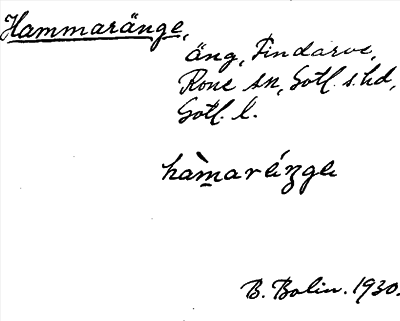 Hammaränge,
äng, Findarve,
Rone sn, Gotl. s. hd,
Gotl. l.
hàmarénge
B. Bolin. 1930.